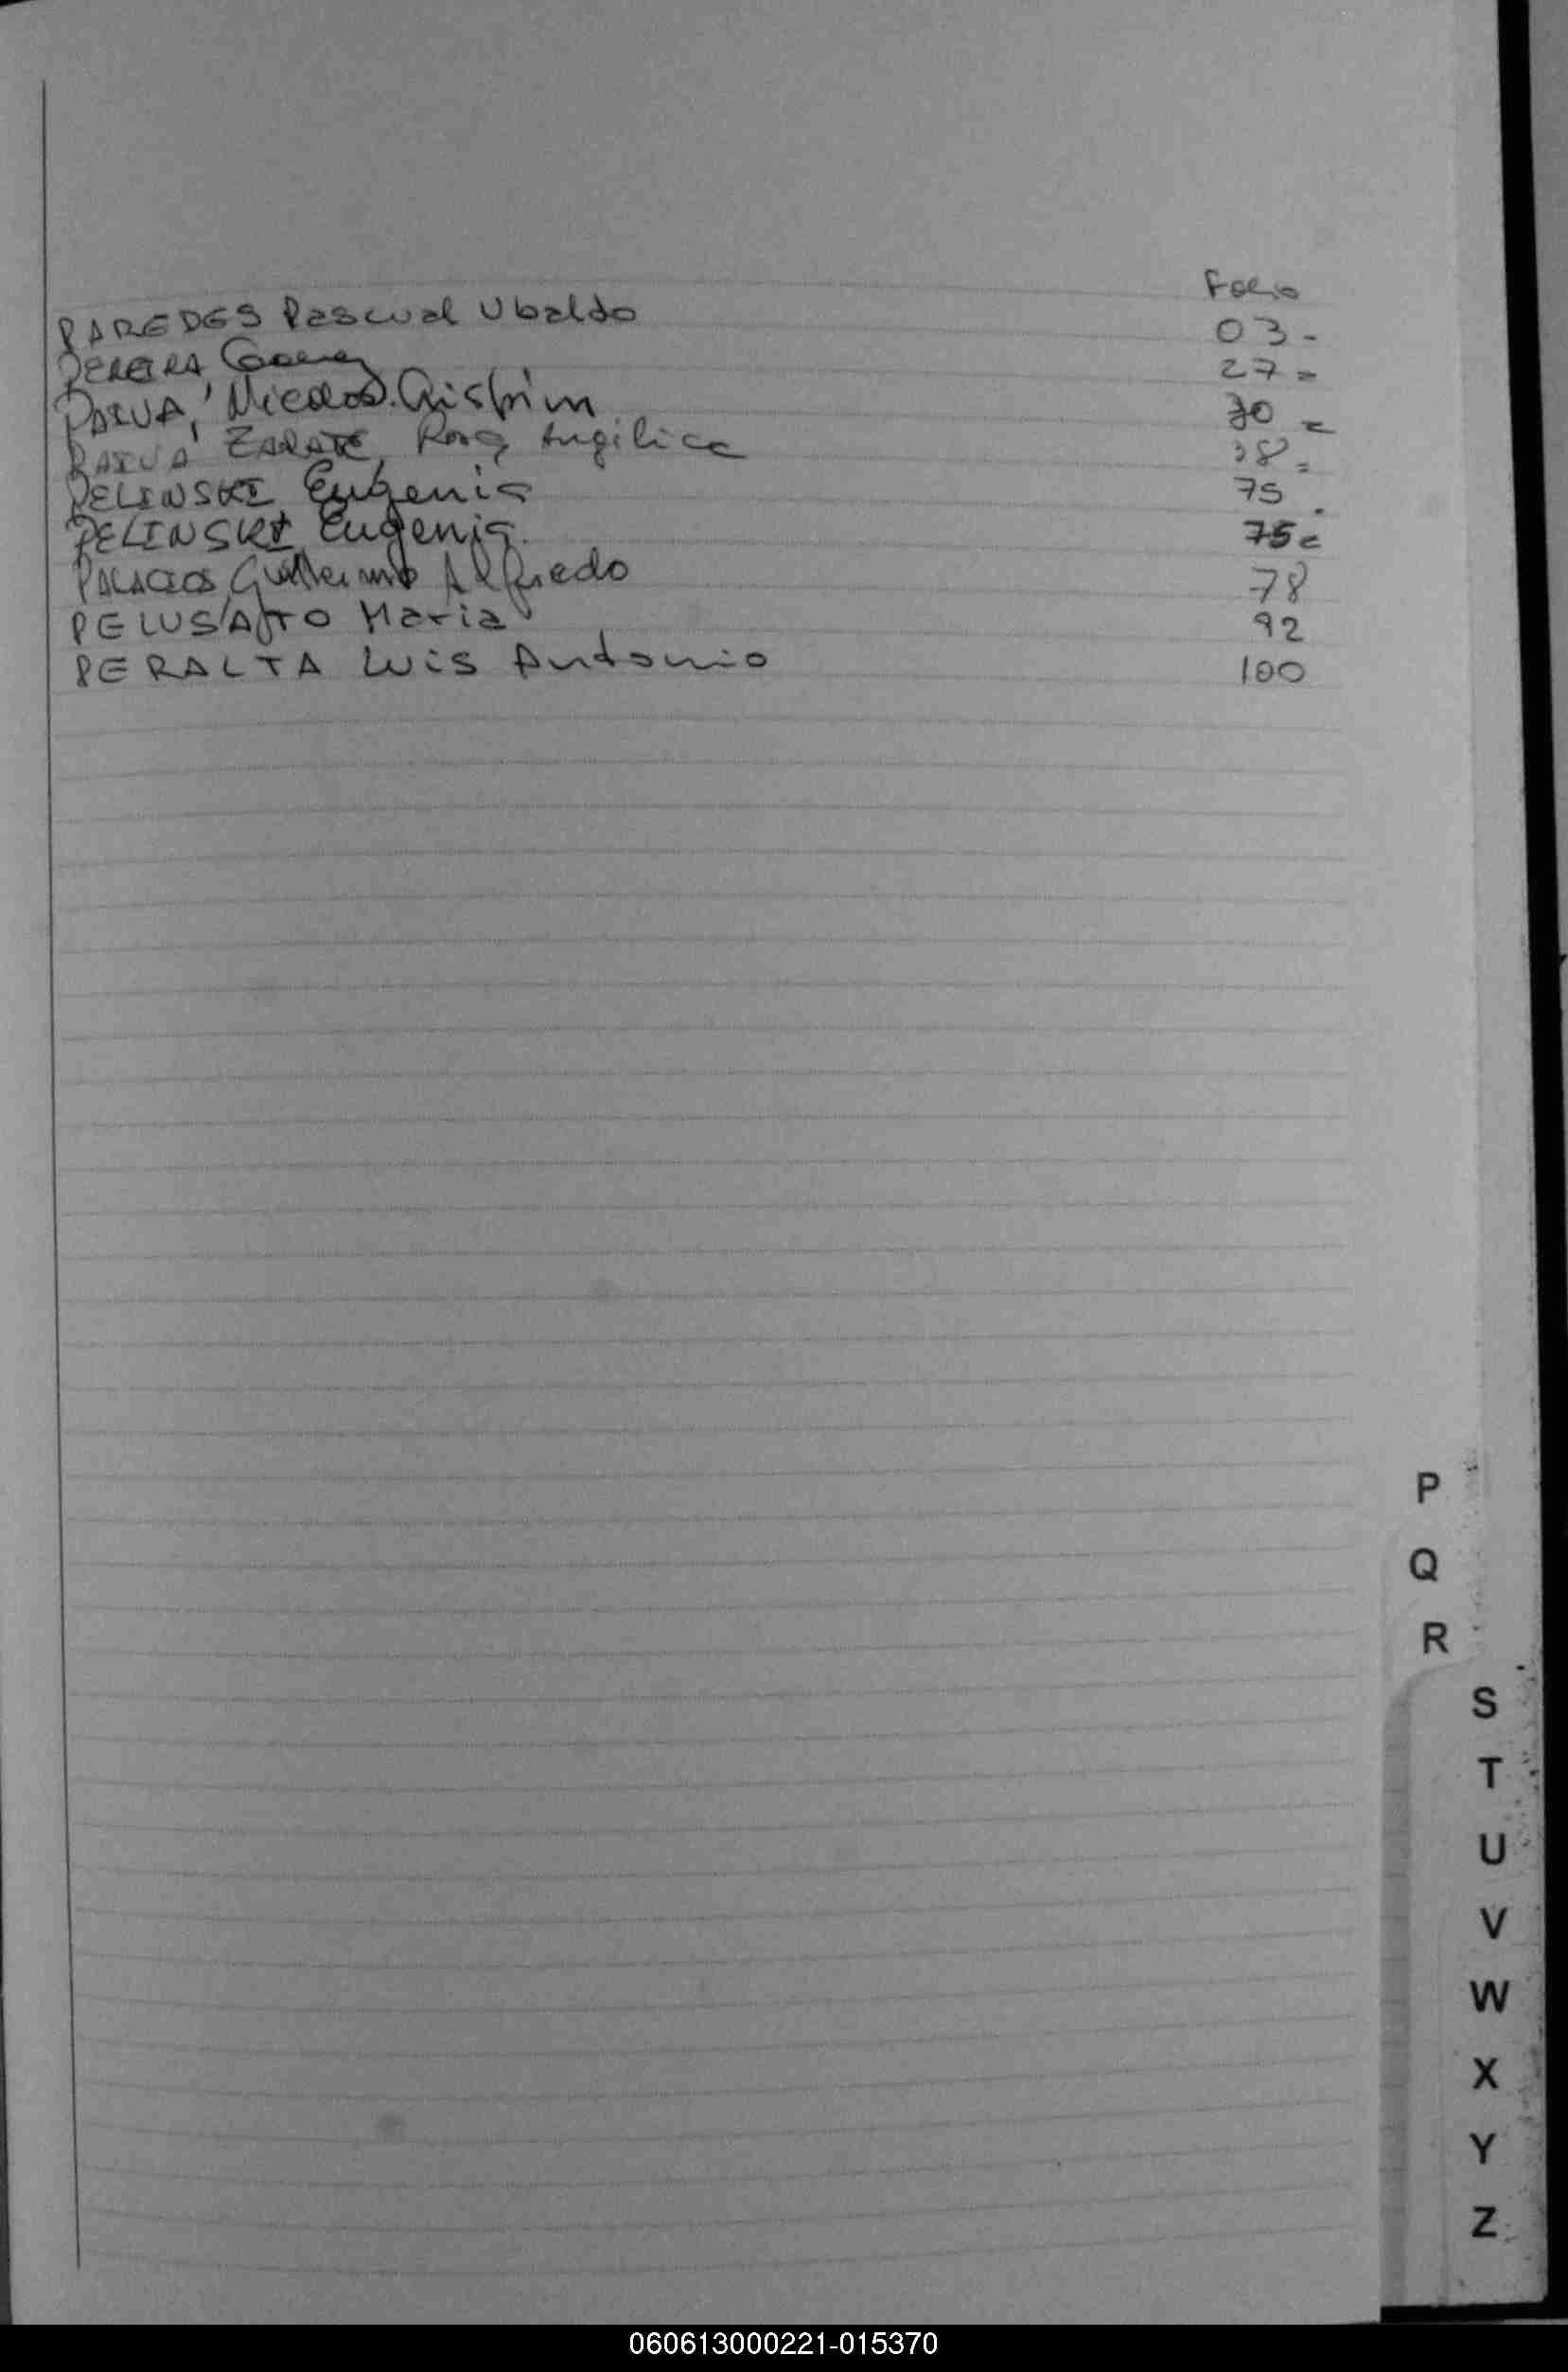 Folio
PAREDES Pascual Ubaldo 03-
PEREIRA 27=
PAIVA, Nicolas Crispin 30=
PAIVA ZARATE, Rosa Angélica 38=
PELINSKI Eugenia 75.
PELINSKI Eugenia. 75=
PALACIOS Guillermo Alfredo 78
PELUSAFFO Maria 92
PERALTA Luis Antonio 100
P
Q
R
S
T
U
V
W
X
Y
Z
060613000221-015370